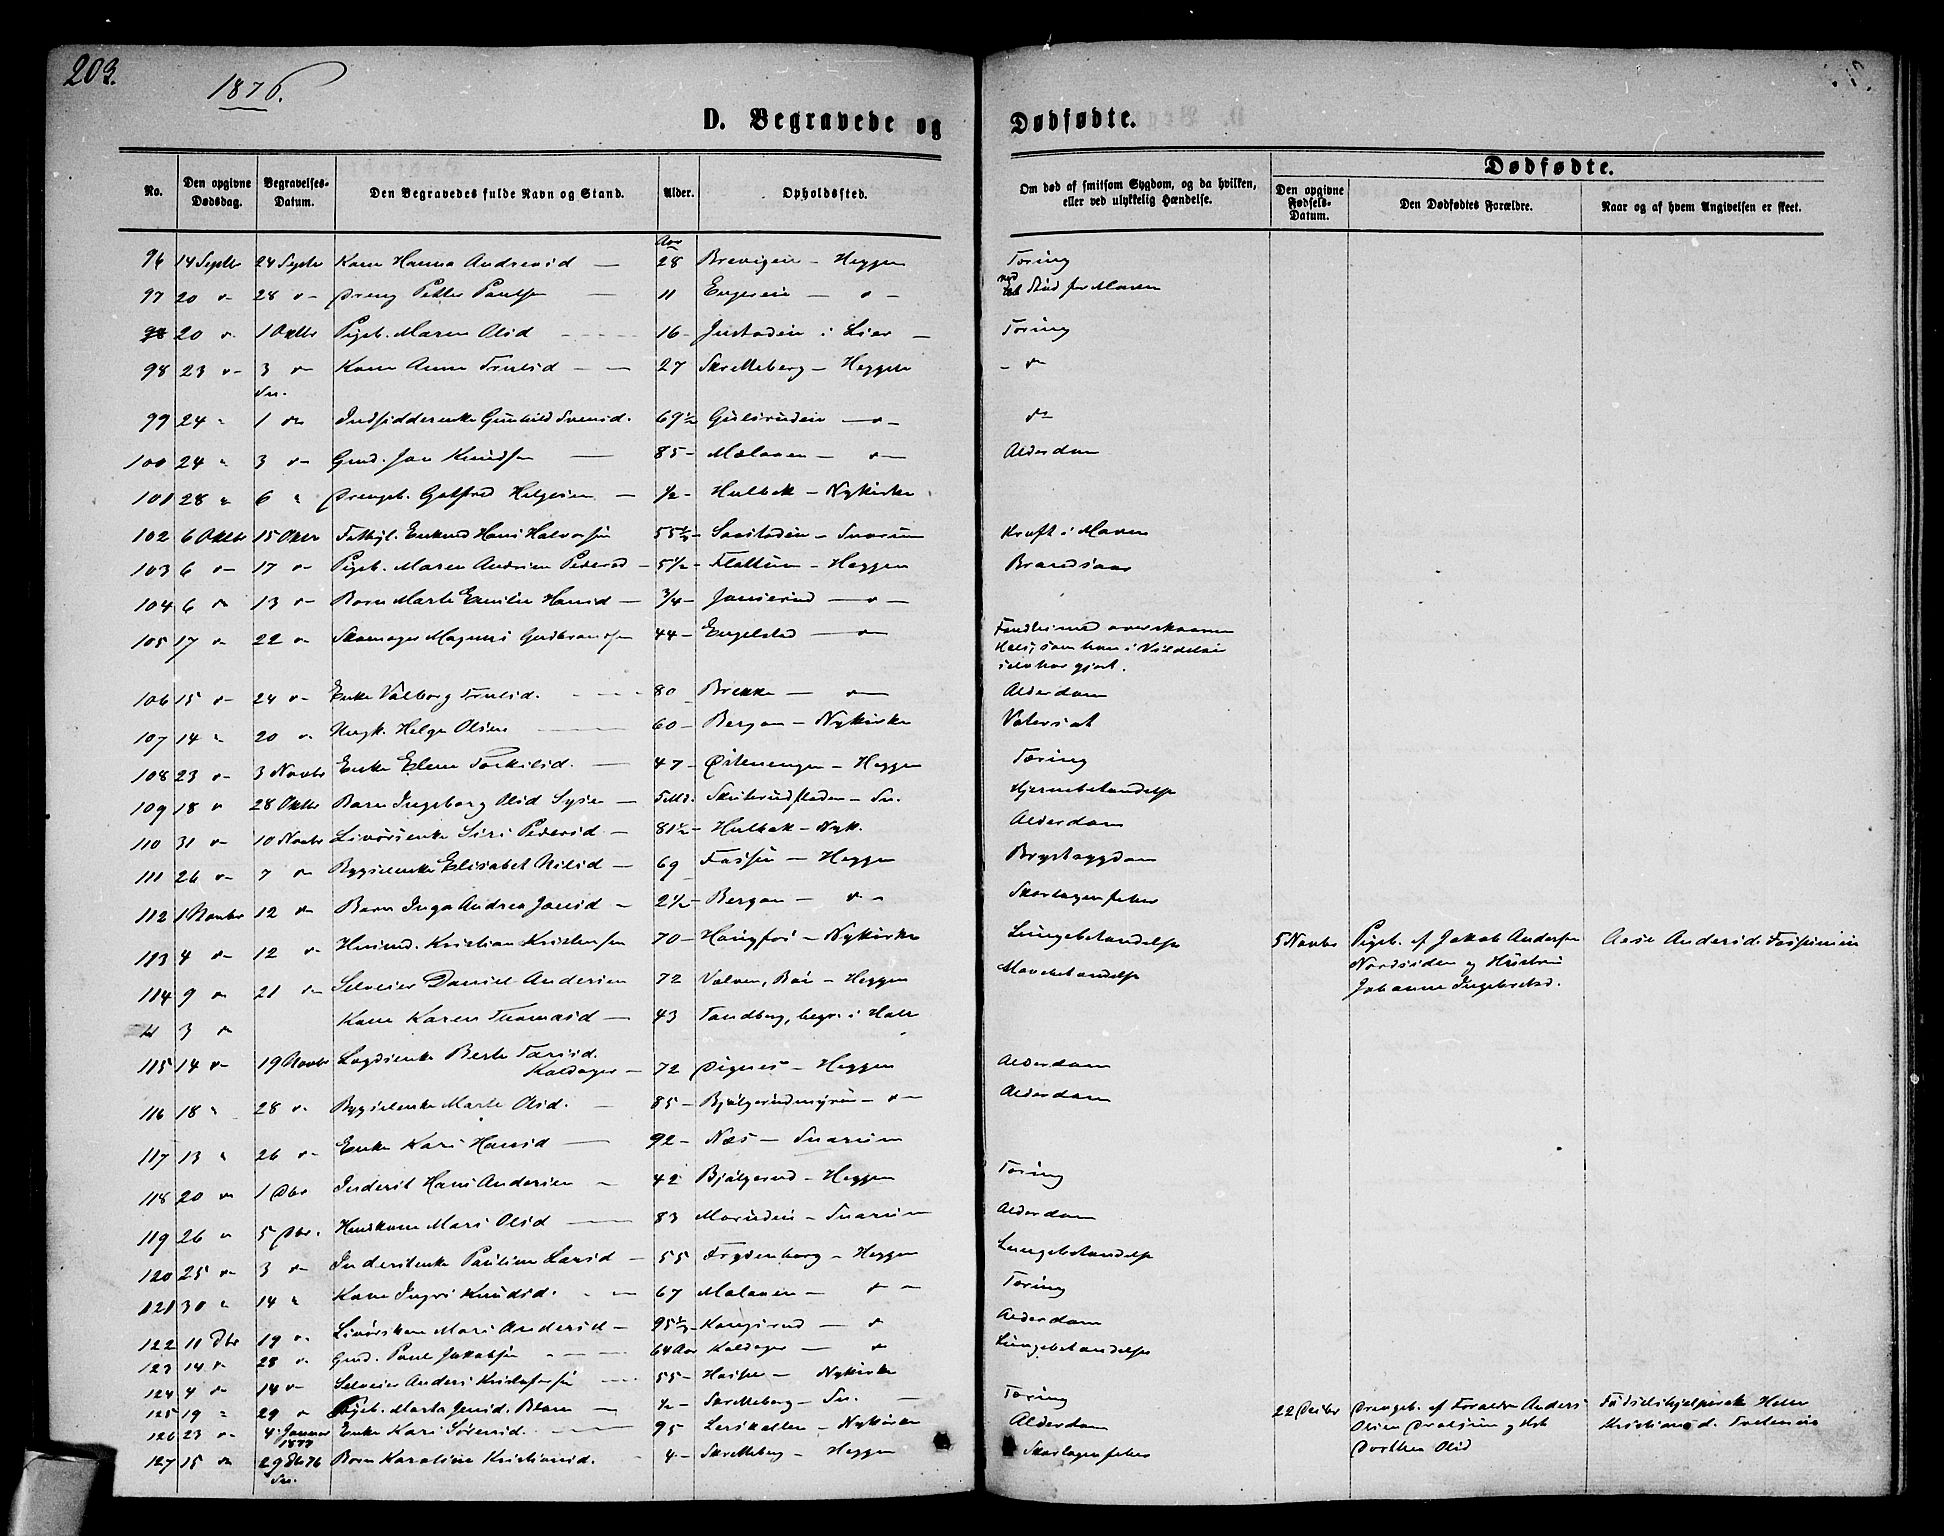 203.
1876.
D. Begravede og
Dødfødte.
No.
Den opgivne Dødsdag.
Begravelses-Datum.
Den Begravedes fulde Navn og Stand.
Alder.
Opholdssted.
Om død af smitsom Sygdom, og da hvilken, eller ved ulykkelig Hændelse.
Dødfødte.
Den opgivne Fødsels-Datum.
Den Dødfødtes Forældre.
Naar og af hvem Angivelsen er skeet.
Aar
96 14 Septbr 24 Septbr Kone Hanna Andersd — 28 Brevigen — Heggen Tæring
97 20 " 28 " Dreng Petter Paulsen — 11 Engereie — " — ved Stød for Maven
98 20 " 1 Oktbr Pigeb. Maren Olsd 16 — Justadeie i Lier — Tæring
98 23 " 3 " Kone Anne Trulsd — 27 Skretteberg — Heggen — "
Sn.
99 24 " 1 " Indsidderenke Gunhild Svensd. 69½ Gulsrudeie — " — "
100 24 " 3 " Gmd. Jon Knudsen — 85 — Mælaaen — " — Alderdom
101 28 " 6 " Drengeb. Gotfred Helgesen — ½ — Hulbak — Nykirke
102 6 Oktbr 15 Oktbr Fattigl. Enkemd Hans Halvorsen 55½ — Snarum Kræft i Maven
103 6 " 17 " Pigeb. Maren Andrine Pedersd — 5½ — Flattum — Heggen Brandsaar
104 6 " 13 " Barn Marte Emilie Hansd — ¾ — Jonsrud — " —
105 17 " 22 " Skomager Magnus Gudbrandsen 44 — Engelstad — " Fandtes med overskaaren
Hals, som han i Vildelse
selv har gjort.
106 15 " 24 " Enke Valborg Trulsd. 80 Brekke — " Alderdom
107 14 " 20 " Helge Olsen 60 — Bergan — Nykirke Vatersot
108 23 " 3 Novbr Enke Elene Torkilsd. — 47 — Østenengen — Heggen Tæring
109 18 " 28 Oktbr Barn Ingeborg Olsd — 5 Md. — Sn. Hjernebetændelse
110 31 " 10 Novbr Livørsenke Siri Pedersd — 81½ — Hulbak — Nyk. Alderdom
111 26 " 7 " Bygselenke Elisabet Nilsd — 69 Fossen — Heggen Brystsygdom
112 1 Novbr 12 " Barn Inga Andrea Jonsd — 2½ — Bergan — " — Skarlagensfeber
113 4 " 12 " Husmd. Kristian Kristensen 70 — Haugfos — Nykirke Lungebetændelse 5 Novbr Pigeb. af Jakob Andersen Aase Andersd. Fossumeie
Nordsiden og Hustru
Johanne Ingebretsd.
114 9 " 21 " Selveier Daniel Andersen 72 Valven, Bøe — Heggen Mavebetændelse
3 " Kone Karen Thomasd — 43 Tandberg, begr. i Hole
115 14 " 19 Novbr Lægdsenke Berte Torsd.
Kaldager — 72 Dignes — Heggen Alderdom
116 18 " 28 " Bygselenke Marte Olsd. — 85 — Bjølgerudmyren — " — Alderdom
117 13 " 26 " Enke Kari Hansd — 92 — Næs — Snarum
118 20 " 1 Dbr Inderst Hans Andersen — 42 Bjølgerud — Heggen Tæring
119 26 " 5 Dbr. Huskone Mari Olsd — 83 Morudeie — Snarum Alderdom
120 25 " 3 " Inderstenke Pauline Larsd — 55 Frydenborg — Heggen Lungebetændelse
121 30 " 14 " Kone Ingri Knudsd. — 67 Mælaaen — " — Tæring
122 11 Dbr 19 " Livørskone Mari Andersd — 95½ — Kongsrud — " Alderdom
123 14 " 28 " Gmd. Paul Jakobsen — 64 Aar Kaldager — " Lungebetændelse
124 4 " 14 " Selveier Anders Kristofersen — 55 — Nykirke
125 19 " 29 " Pigeb. Marte Jensd. — ½ — Skretteberg — Sn. — Tæring 22 Decbr Drengeb. af Foræld. Anders Fødselshjelperske Helene
126 23 " 4 Januar Enke Kari Sørensd. 95 Lerskallen — Nykirke Alderdom Olsen og Hst Kristiansd.
1877 Dorthea Olsd
127 15 " 29 Db 76 Barn Karoline Kristiansd. 4 — Skretteberg — Heggen Skarlagensfeber
Sn.